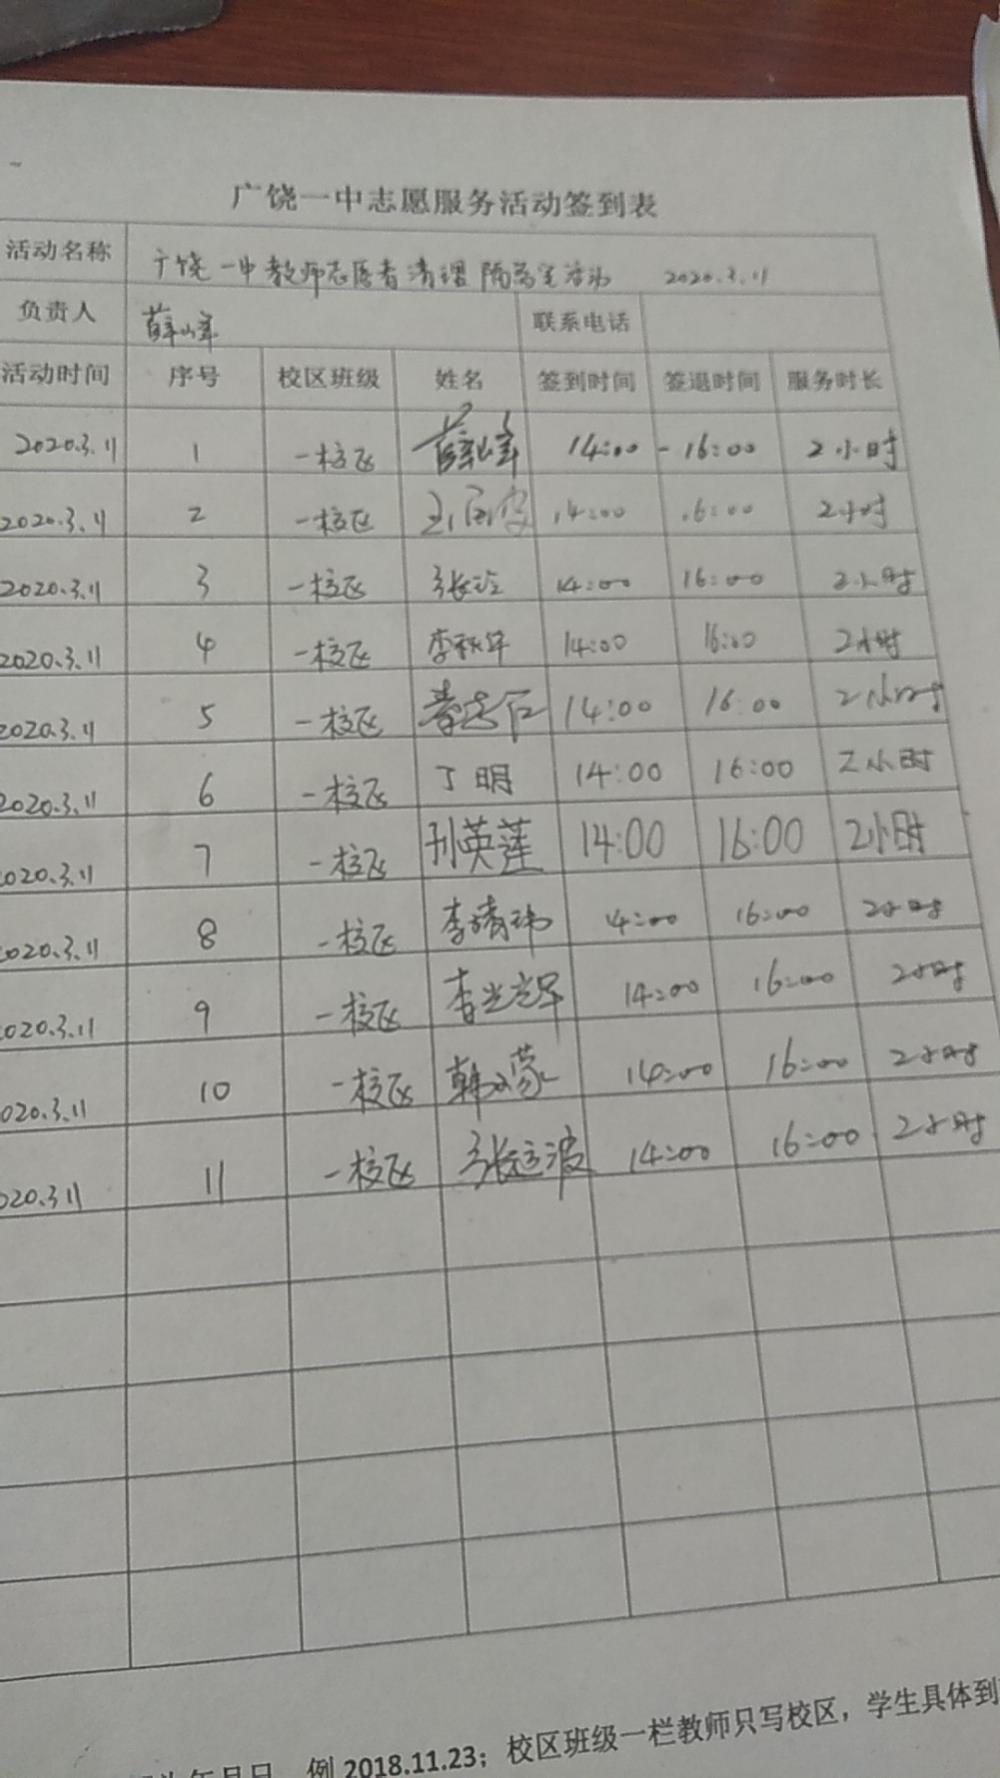 广饶一中志愿服务活动签到表
活动名称 广饶一中教师志愿者清理隔离室活动 2020.3.11
负责人 薛峰 联系电话
活动时间 序号 校区班级 姓名 签到时间 签退时间 服务时长
2020.3.11 1 一校区 薛峰 14:00 - 16:00 2小时
2020.3.11 2 一校区 14:00 16:00 2小时
2020.3.11 3 一校区 14:00 16:00 2小时
2020.3.11 4 一校区 李秋华 14:00 16:00 2小时
2020.3.11 5 一校区 14:00 16:00 2小时
2020.3.11 6 一校区 丁明 14:00 16:00 2小时
2020.3.11 7 一校区 孙英莲 14:00 16:00 2小时
2020.3.11 8 一校区 李靖玮 14:00 16:00 2小时
2020.3.11 9 一校区 李光辉 14:00 16:00 2小时
020.3.11 10 一校区 韩蒙 14:00 16:00 2小时
020.3.11 11 一校区 张远波 14:00 16:00 2小时
年月日，例 2018.11.23；校区班级一栏教师只写校区，学生具体到